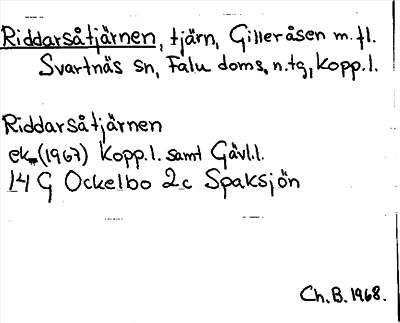 Riddarsåtjärnen, tjärn, Gilleråsen m.fl.
Svartnäs sn, Falu doms. n.tg, Kopp.l.
Riddarsåtjärnen
ek. (1967) Kopp.l. samt Gävl.l.
14 G Ockelbo 2c Spaksjön
Ch.B. 1968.